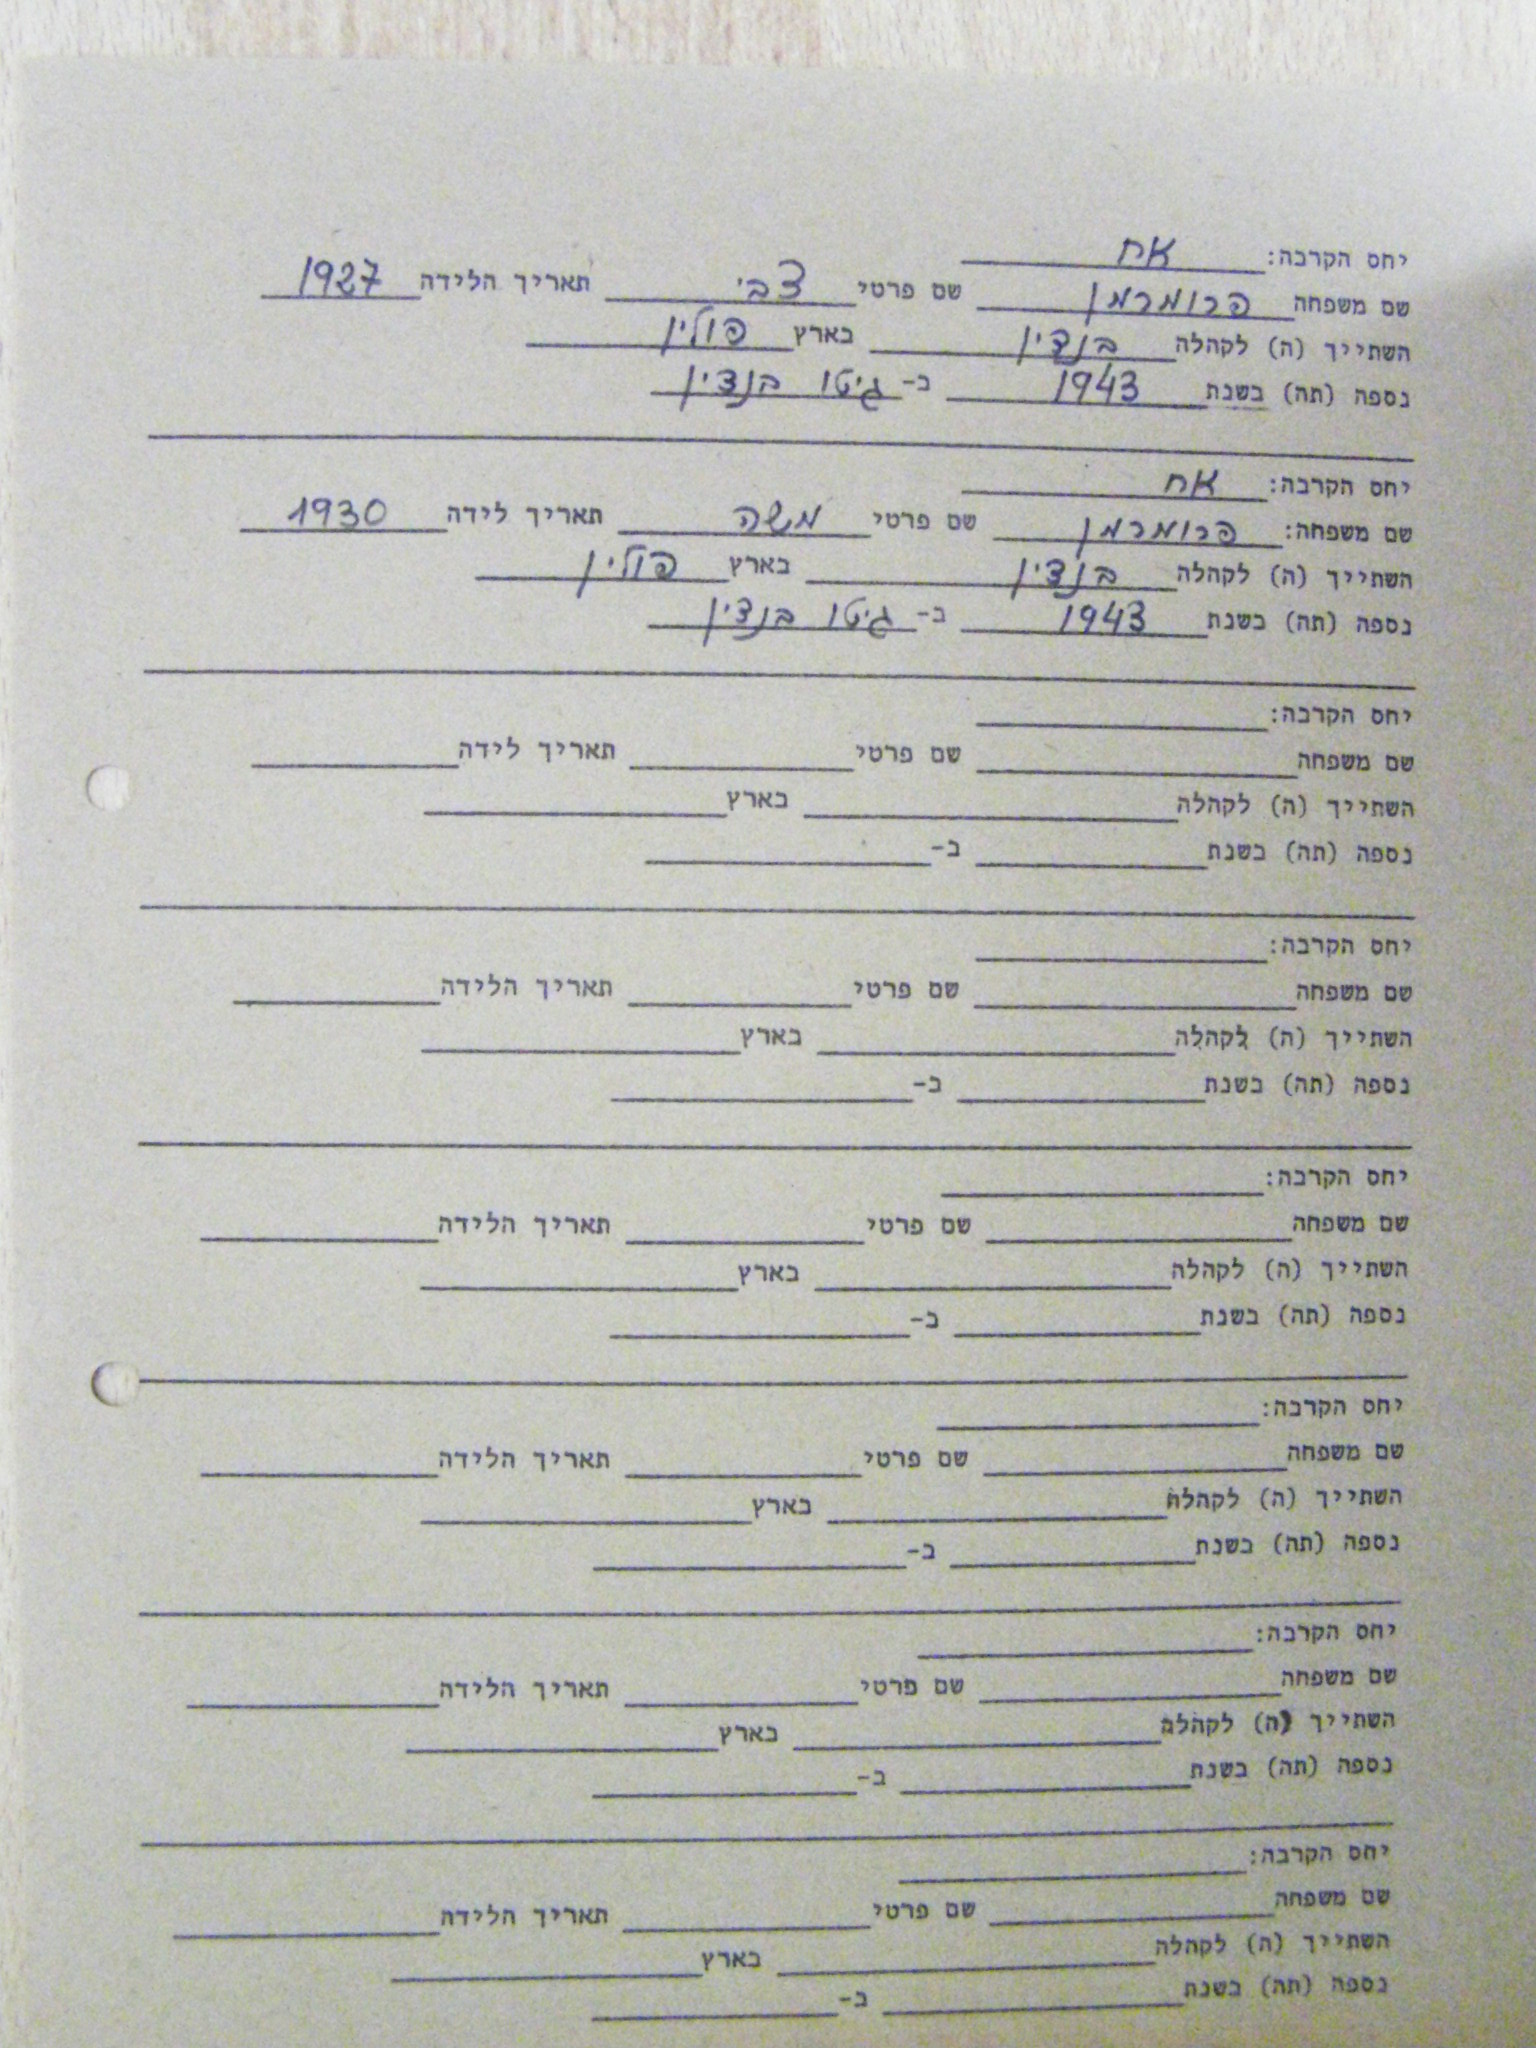 יחס הקרבה: אח
שם משפחה פרומרמן שם פרטי צבי תאריך הלידה 1927
השתייך (ה) לקהלה בנדין בארץ פולין
נספה (תה) בשנת 1943 ב- גיטו בנדין
יחס הקרבה: אח
שם משפחה: פרומרמן שם פרטי משה תאריך לידה 1930
השתייך (ה) לקהלה בנדין בארץ פולין
נספה (תה) בשנת 1943 ב- גיטו בנדין
יחס הקרבה:
שם משפחה שם פרטי תאריך לידה
השתייך (ה) לקהלה בארץ
נספה (תה) בשנת ב-
יחס הקרבה:
שם משפחה שם פרטי תאריך הלידה
השתייך (ה) לקהלה בארץ
נספה (תה) בשנת ב-
יחס הקרבה:
שם משפחה שם פרטי תאריך הלידה
השתייך (ה) לקהלה בארץ
נספה (תה) בשנת ב-
יחס הקרבה:
שם משפחה שם פרטי תאריך הלידה
השתייך (ה) לקהלה בארץ
נספה (תה) בשנת ב-
יחס הקרבה:
שם משפחה שם פרטי תאריך הלידה
השתייך (ה) לקהלה בארץ
נספה (תה) בשנת ב-
יחס הקרבה:
שם משפחה שם פרטי תאריך הלידה
השתייך (ה) לקהלה בארץ
נספה (תה) בשנת ב-